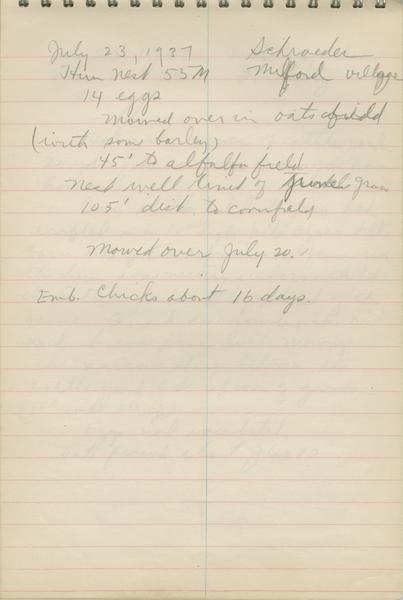 July 23, 1937 Schroeder
Hun nest 55M Milford village
14 eggs
Mowed over in oats field
(with some barley)
45' to alfalfa field
Nest well lined of grass
105' dist. to cornfield
Mowed over July 20.
Emb. Chicks about 16 days.